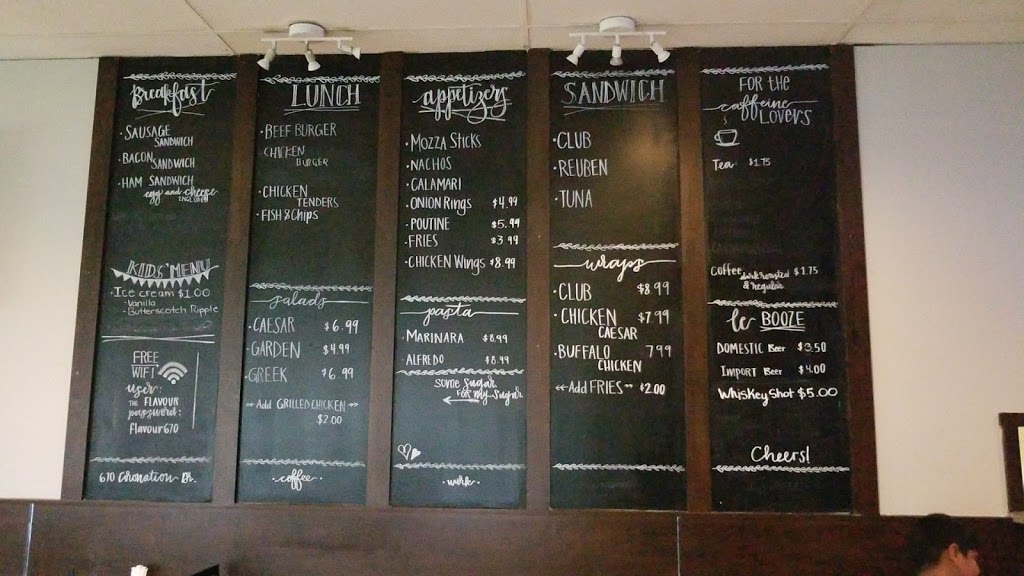 Breakfast
·SAUSAGE
SANDWICH
·BACON
SANDWICH
·HAM SANDWICH
egg and cheese
KIDS' MENU
·Ice cream $1.00
- Vanilla
- Butterscotch Ripple
FREE
WIFI
user:
THE FLAVOUR
password:
Flavour670
LUNCH
·BEEF BURGER
CHICKEN
BURGER
·CHICKEN
TENDERS
·FISH & Chips
salads
·CAESAR $6.99
·GARDEN $4.99
·GREEK $6.99
Add GRILLED CHICKEN
$2.00
·coffee·
appetizers
·MOZZA STICKS
·NACHOS
·CALAMARI
·ONION Rings $4.99
·POUTINE $5.99
·FRIES $3.99
·CHICKEN Wings $8.99
pasta
·MARINARA $8.99
ALFREDO $8.99
some sugar
FOR my sugar
SANDWICH
·CLUB
·REUBEN
·TUNA
wraps
·CLUB $8.99
·CHICKEN $7.99
CAESAR
·BUFFALO 7.99
CHICKEN
Add FRIES $2.00
FOR the
caffeine
LOVERS
Tea $1.75
Coffee dark roasted $1.75
& Regular
le BOOZE
DOMESTIC Beer $3.50
IMPORT Beer $4.00
Whiskey Shot $5.00
Cheers!